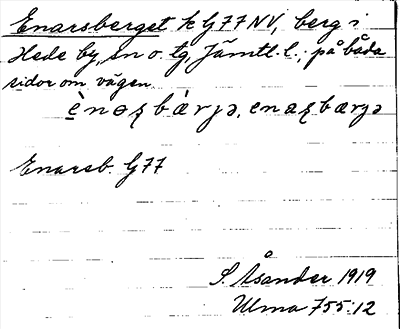 Enarsberget k G77NV, berg i
Hede by, sn o. tg, Jämtl. l.; på båda
sidor om vägen.
ènɵʂbàrjə, enaʂbærjə
Enarsb. G77
S. Åsander 1919
Ulma 755:12